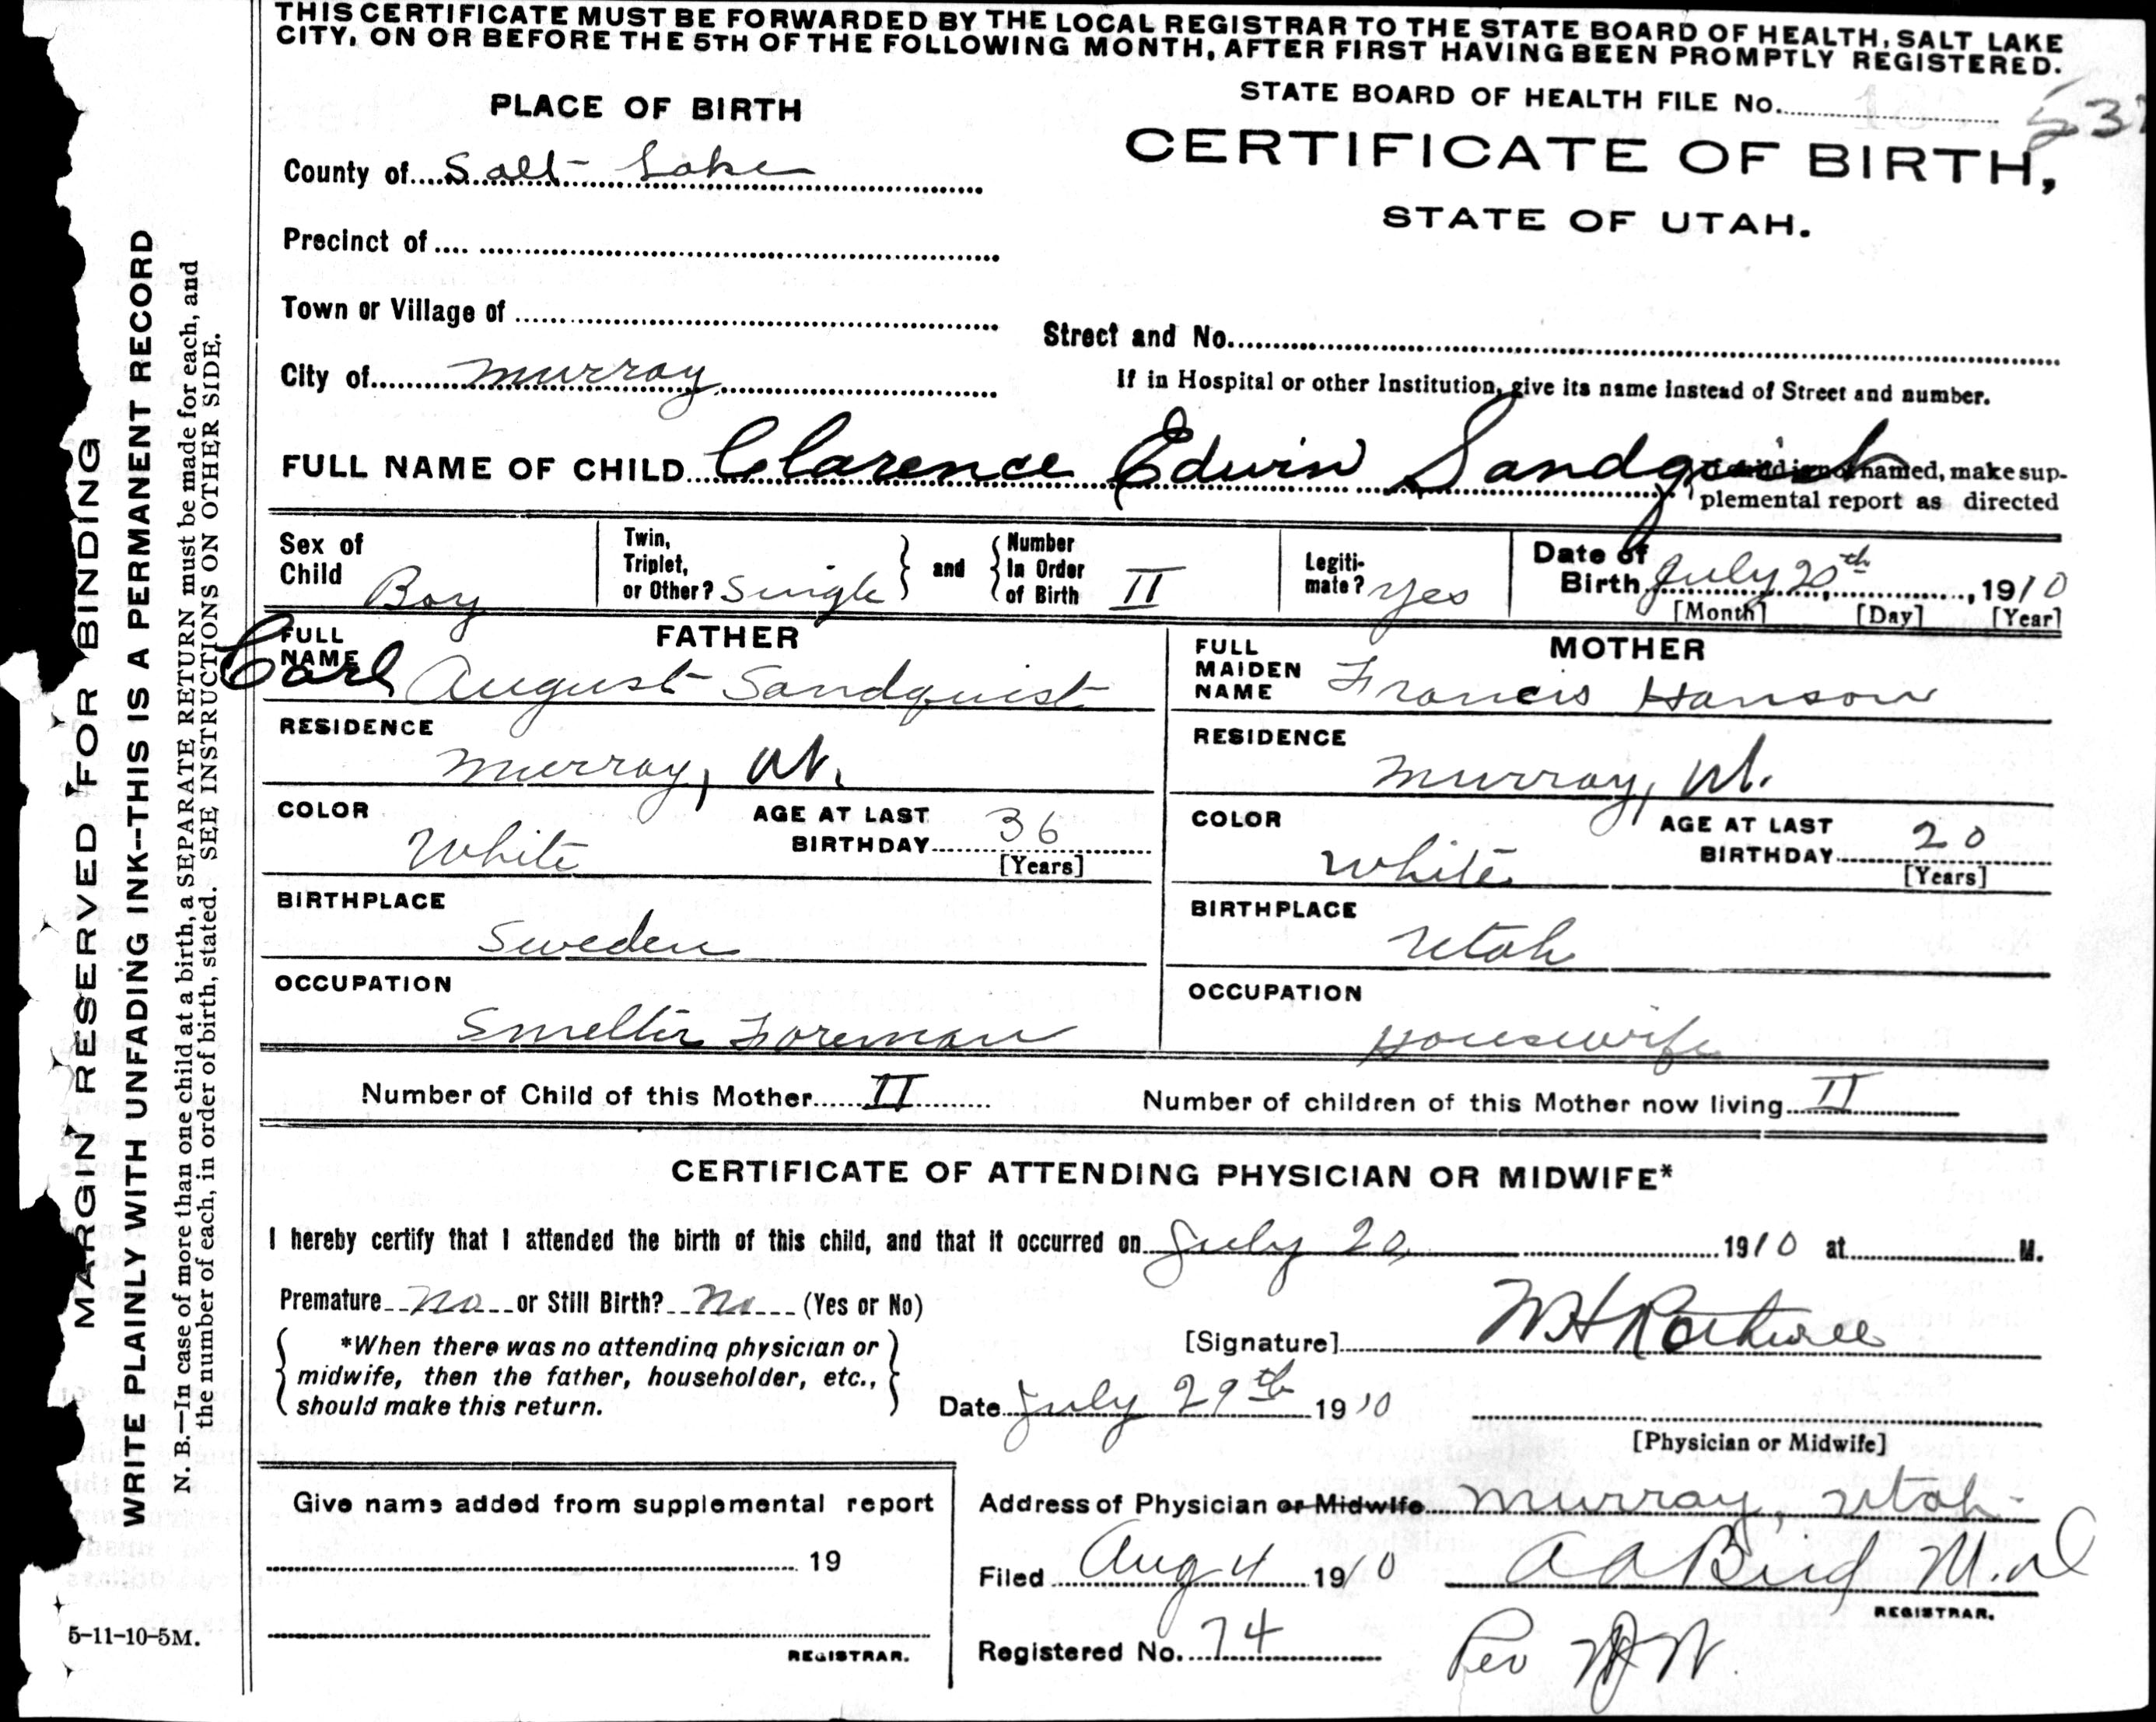 THIS CERTIFICATE MUST BE FORWARDED BY THE LOCAL REGISTRAR TO THE STATE BOARD OF HEALTH, SALT LAKE
CITY, ON OR BEFORE THE 5TH OF THE FOLLOWING MONTH, AFTER FIRST HAVING BEEN PROMPTLY REGISTERED.
STATE BOARD OF HEALTH FILE No.
PLACE OF BIRTH
CERTIFICATE OF BIRTH,
STATE OF UTAH.
County of Salt Lake
Precinct of
Town or Village of
Street and No.
City of Murray
If in Hospital or other Institution, give its name instead of Street and number.
FULL NAME OF CHILD Clarence Edwin Sandquist
named, make sup-
plemental report as directed
Sex of Child Boy
Twin, Triplet, or Other? Single and Number In Order of Birth II
Legiti-mate? Yes
Date of Birth July 20th, 1910
[Month] [Day] [Year]
FATHER
FULL NAME Carl August Sandquist
RESIDENCE
Murray, Ut.
COLOR White
AGE AT LAST BIRTHDAY 36
[Years]
BIRTHPLACE
Sweden
OCCUPATION
Smelter Foreman
MOTHER
FULL MAIDEN NAME Francis Hanson
RESIDENCE
Murray, Ut.
COLOR White
AGE AT LAST BIRTHDAY 20
[Years]
BIRTHPLACE
Utah
OCCUPATION
Housewife
Number of Child of this Mother II
Number of children of this Mother now living II
CERTIFICATE OF ATTENDING PHYSICIAN OR MIDWIFE*
I hereby certify that I attended the birth of this child, and that it occurred on July 20, 1910 at M.
Premature No or Still Birth? No (Yes or No)
*When there was no attending physician or
midwife, then the father, householder, etc.,
should make this return.
[Signature] W H Rothwell
Date July 29th 1910
[Physician or Midwife]
Give name added from supplemental report
19
REGISTRAR.
Address of Physician or Midwife Murray, Utah
Filed Aug 4 1910 A A Bird M.D
REGISTRAR.
Registered No. 74
Per
MARGIN RESERVED FOR BINDING
WRITE PLAINLY WITH UNFADING INK--THIS IS A PERMANENT RECORD
N. B.—In case of more than one child at a birth, a SEPARATE RETURN must be made for each, and
the number of each, in order of birth, stated. SEE INSTRUCTIONS ON OTHER SIDE.
5-11-10-5M.